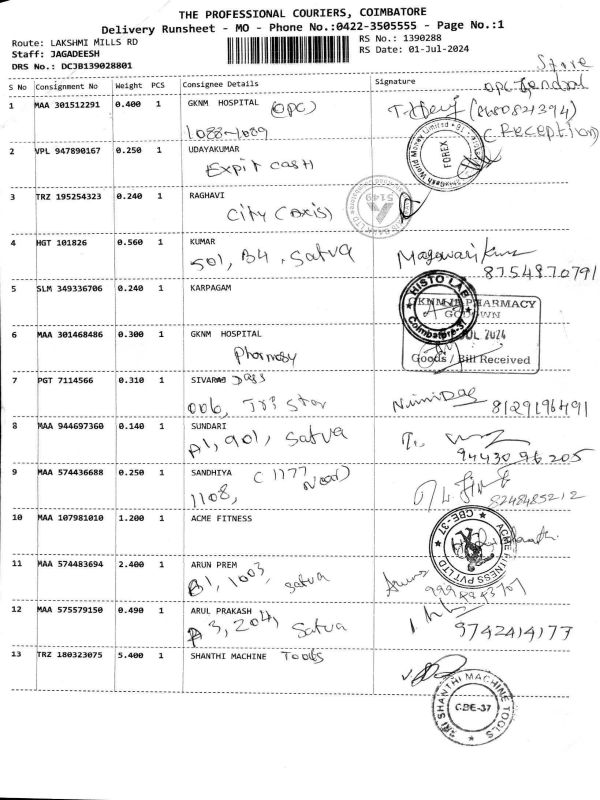 THE PROFESSIONAL COURIERS, COIMBATORE
Delivery Runsheet - MO - Phone No.:0422-3505555 - Page No.:1
Route: LAKSHMI MILLS RD
RS No.: 1390288
Staff: JAGADEESH
RS Date: 01-Jul-2024
DRS No.: DCJB139028801
Store
S No Consignment No Weight PCS Consignee Details Signature
1 MAA 301512291 0.400 1 GKNM HOSPITAL (OPC)
1088-1089
(Reception)
2 VPL 947890167 0.250 1 UDAYAKUMAR
Expit cash
FOREX
3 TRZ 195254323 0.240 1 RAGHAVI
City (Axis)
5149
4 HGT 101826 0.560 1 KUMAR
501, B4, Satva
8754870791
5 SLM 349336706 0.240 1 KARPAGAM
HISTO LAB
Coimbatore-37
GKNM IP PHARMACY
GODOWN
JUL 2024
Goods / Bill Received
6 MAA 301468486 0.300 1 GKNM HOSPITAL
Pharmacy
7 PGT 7114566 0.310 1 SIVARAM Dass
006, Tri Star
8129196491
8 MAA 944697360 0.140 1 SUNDARI
A1, 901, Satva
9443096205
9 MAA 574436688 0.250 1 SANDHIYA
1108, (1177 Near)
8248485212
10 MAA 107981010 1.200 1 ACME FITNESS
ACME FITNESS PVT LTD
CBE-37
11 MAA 574483694 2.400 1 ARUN PREM
B1, 1003, Satva
12 MAA 575579150 0.490 1 ARUL PRAKASH
A3, 204, Satva
9742414177
13 TRZ 180323075 5.400 1 SHANTHI MACHINE Tools
SRI SHANTHI MACHINE TOOLS
CBE-37